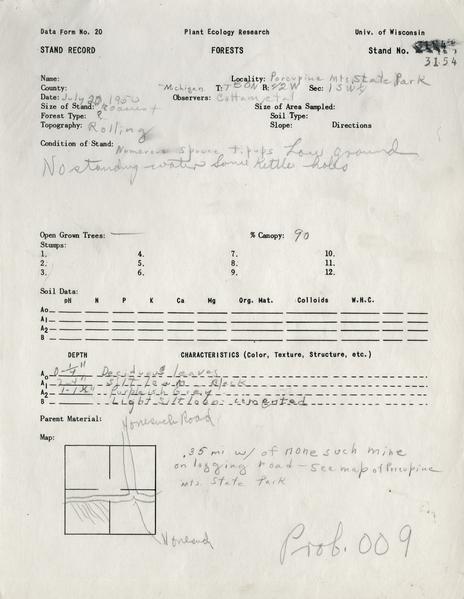 Data Form No. 20 Plant Ecology Research Univ. of Wisconsin
STAND RECORD FORESTS Stand No.
3154
Name: Locality: Porcupine Mts. State Park
County: Michigan T: 50N R: 42W Sec: 15
Date: July 20, 1950 Observers: Cottam et al
Size of Stand: Size of Area Sampled:
Forest Type: Soil Type:
Topography: Rolling Slope: Directions
Condition of Stand: Numerous spruce tipups Low ground
No standing water some kettle holes
Open Grown Trees: — % Canopy: 90
Stumps:
1. 4. 7. 10.
2. 5. 8. 11.
3. 6. 9. 12.
Soil Data:
pH N P K Ca Mg Org. Mat. Colloids W.H.C.
Ao
A1
A2
B
DEPTH CHARACTERISTICS (Color, Texture, Structure, etc.)
Ao Deciduous leaves
A1 Silt loam - Black
A2 Purpleish Grey
B Light silt loam cemented
Parent Material: Nonesuch Road
Map:
.35 mi w/ of nonesuch mine
on logging road - see map of Porcupine
Mts. State Park
Nonesuch
Prob. 009